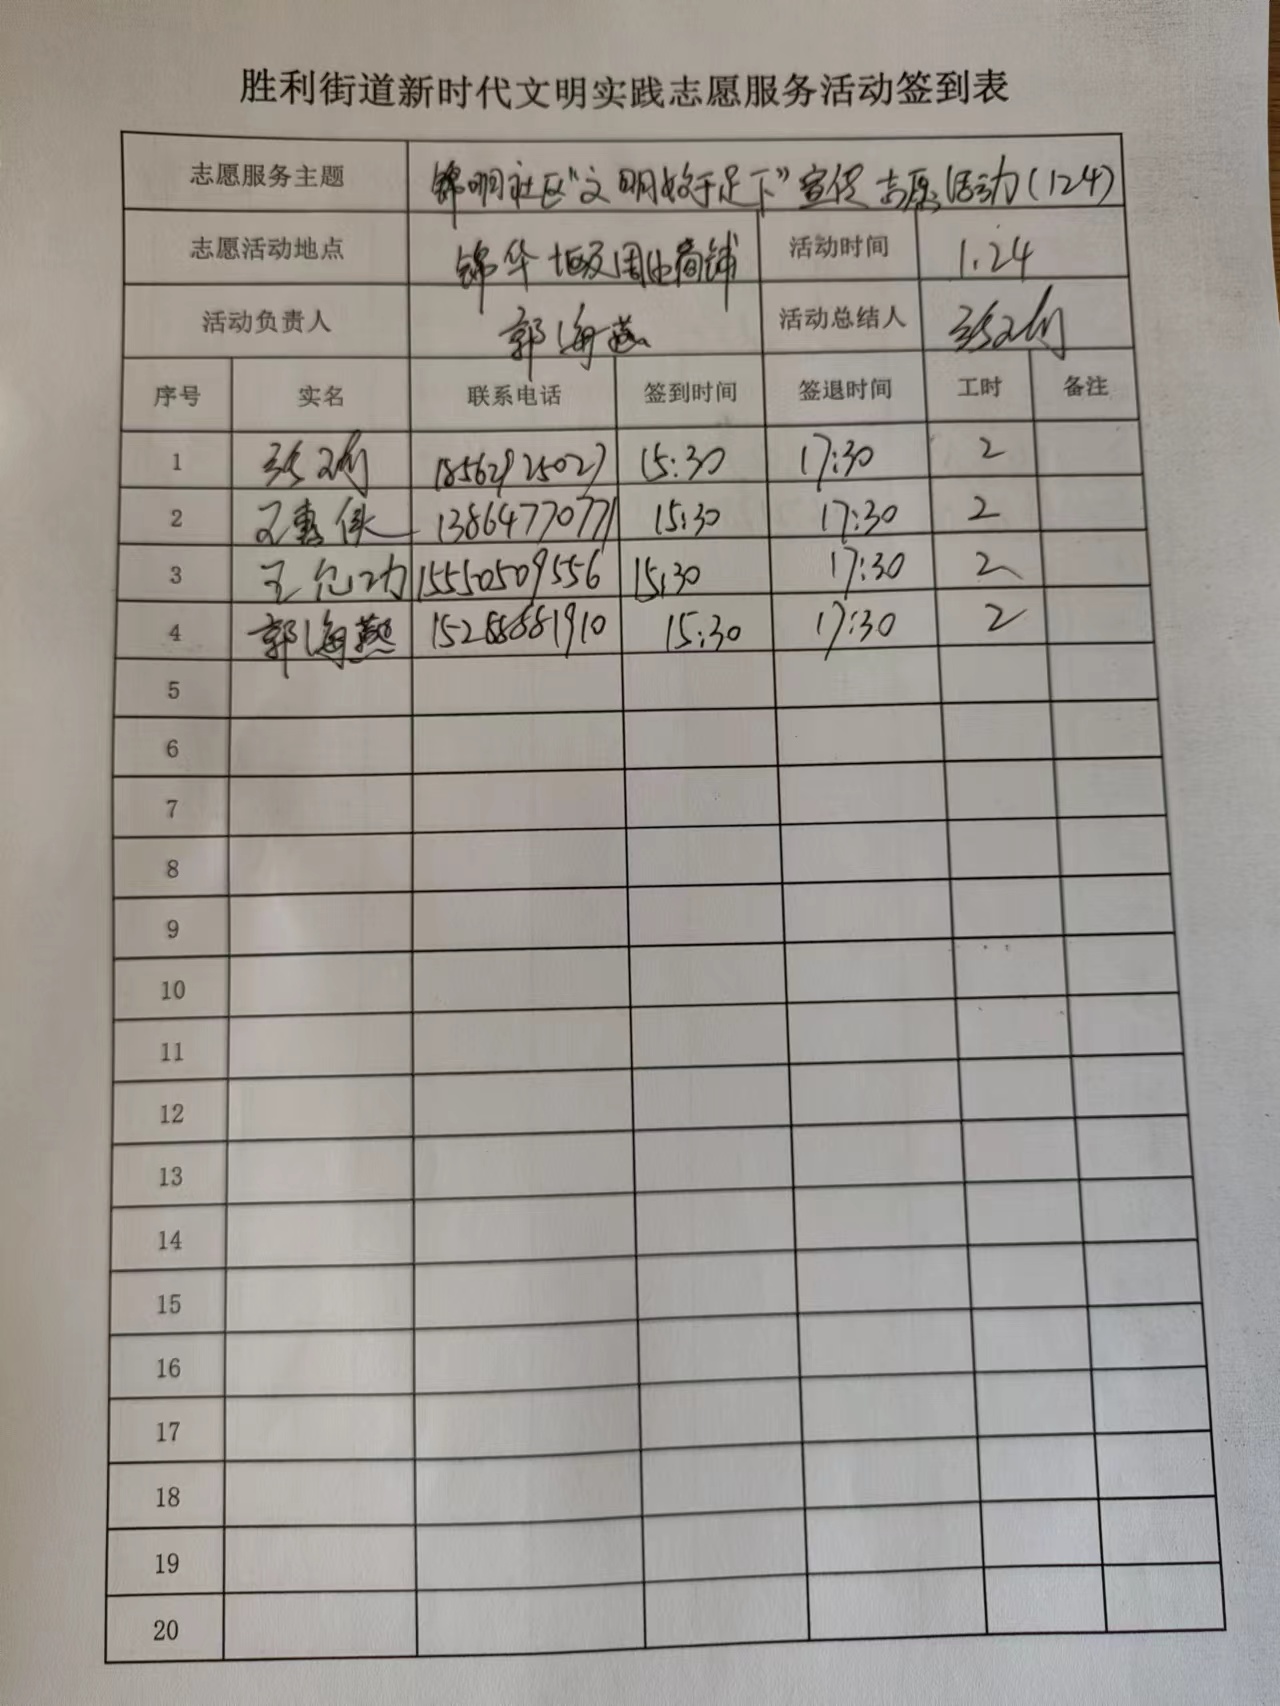 胜利街道新时代文明实践志愿服务活动签到表
志愿服务主题 锦明社区“文明始于足下”宣促志愿活动(124)
志愿活动地点 锦华 周边商铺 活动时间 1.24
活动负责人 郭海燕 活动总结人
序号 实名 联系电话 签到时间 签退时间 工时 备注
1 18562925027 15:30 17:30 2
2 王惠侠 13864770771 15:30 17:30 2
3 王 15550509556 15:30 17:30 2
4 郭海燕 15288881910 15:30 17:30 2
5
6
7
8
9
10
11
12
13
14
15
16
17
18
19
20